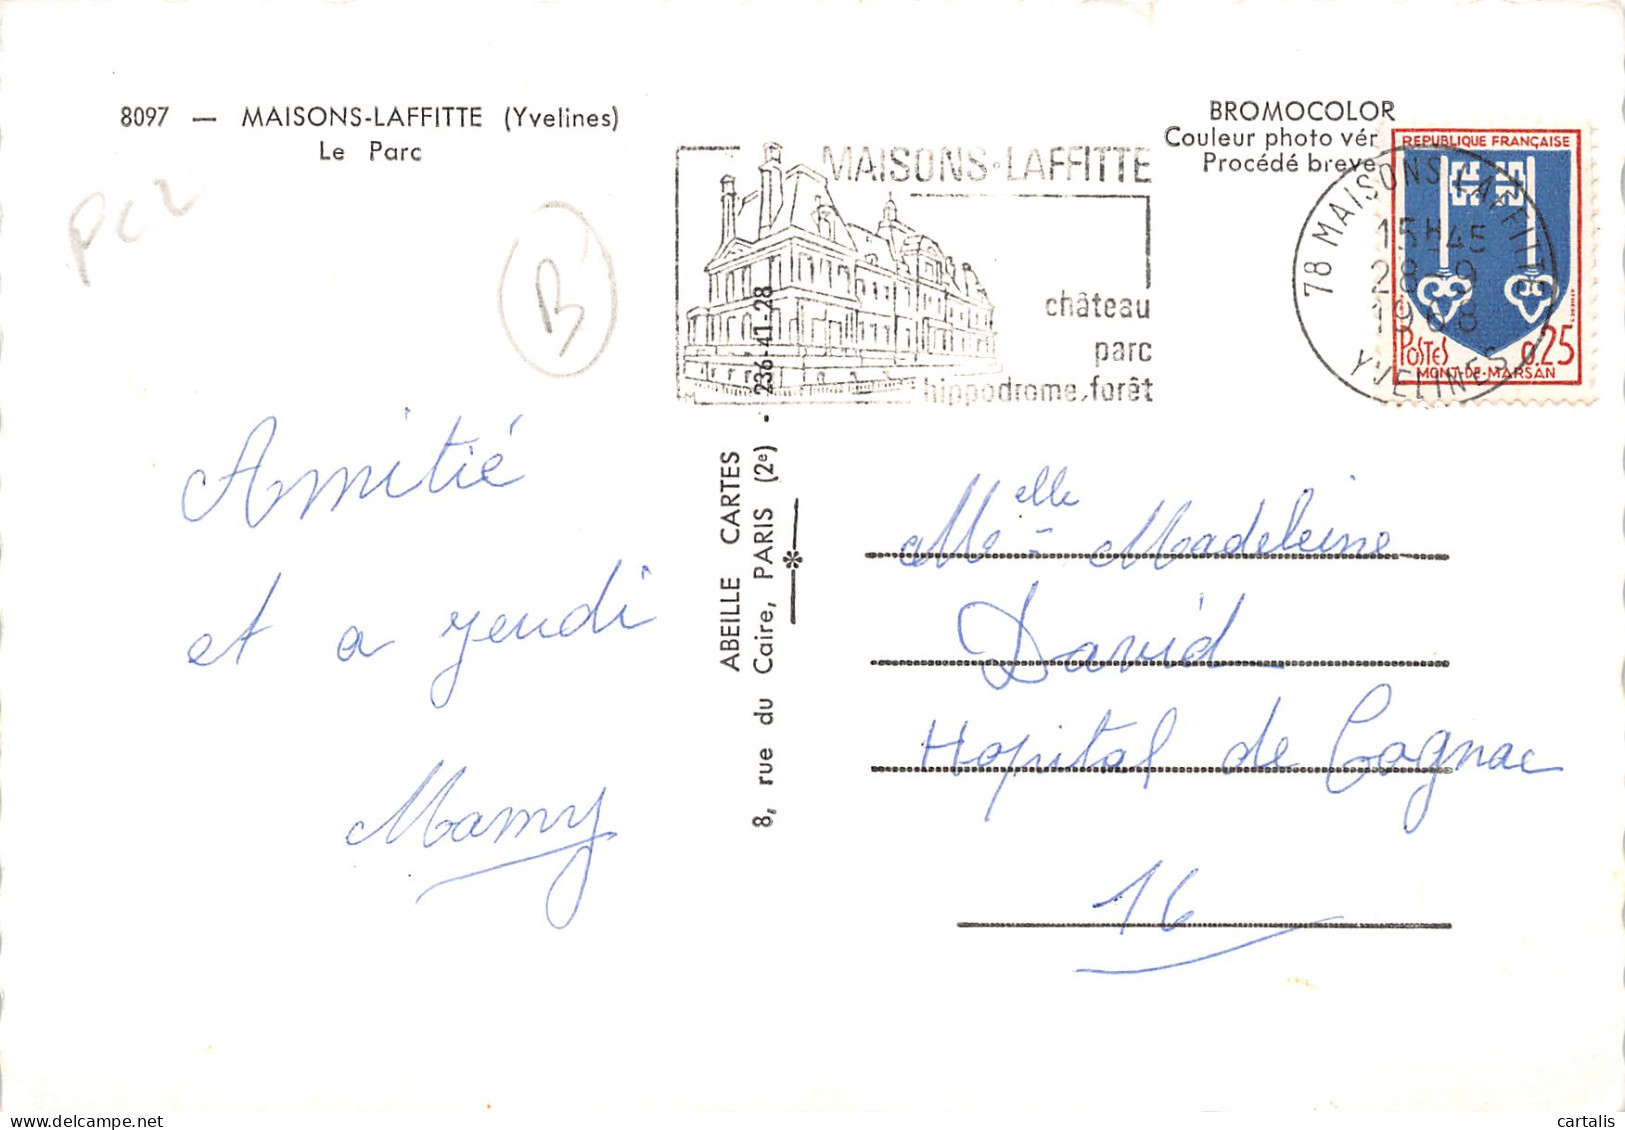 8097 — MAISONS-LAFFITTE (Yvelines)
Le Parc
BROMOCOLOR
Couleur photo vér
Procédé breve
PC2
B
MAISONS-LAFFITTE
château
parc
hippodrome, forêt
M
REPUBLIQUE FRANÇAISE
POSTES 0,25
MONT-DE-MARSAN
78 MAISONS-LAFFITTE
15H45
28-9
1968
YVELINES
ABEILLE CARTES
8, rue du Caire, PARIS (2e) - 236-41-28
Amitié
et a jeudi
Mamy
Melle Madeleine
David
Hopital de Cognac
16
cartalis